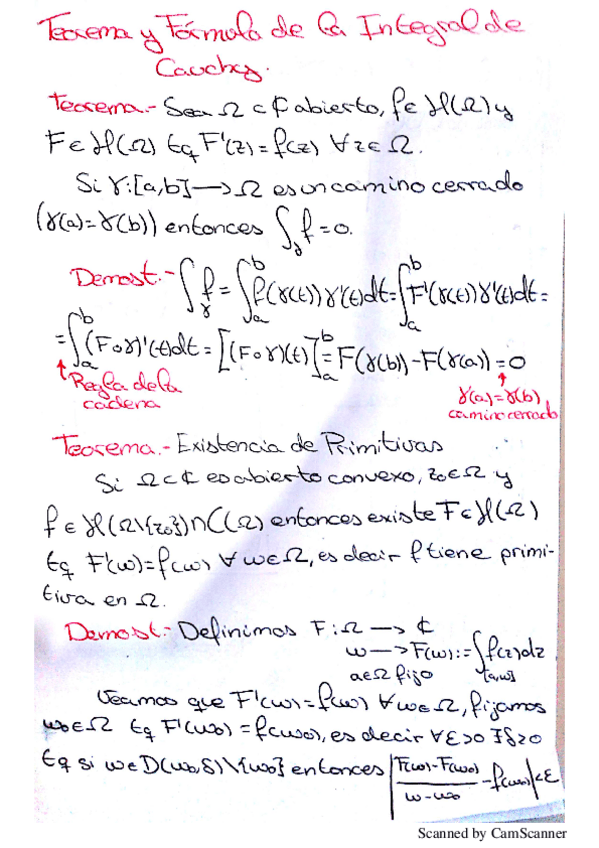 Teorema y Fórmula de la Integral de
Cauchy.
Teorema.- Sea Ω ⊂ ℂ abierto, f ∈ H(Ω) y
F ∈ H(Ω) tq F'(z) = f(z) ∀ z ∈ Ω.
Si γ: [a,b] → Ω es un camino cerrado
(γ(a) = γ(b)) entonces ∫_γ f = 0.
Demost.- ∫_γ f = ∫_a^b f(γ(t)) γ'(t) dt = ∫_a^b F'(γ(t)) γ'(t) dt =
= ∫_a^b (F∘γ)'(t) dt = [(F∘γ)(t)]_a^b = F(γ(b)) - F(γ(a)) = 0
↑ Regla de la
cadena
↑
γ(a) = γ(b)
camino cerrado
Teorema.- Existencia de Primitivas
Si Ω ⊂ ℂ es abierto convexo, z₀ ∈ Ω y
f ∈ H(Ω\{z₀}) ∩ C(Ω) entonces existe F ∈ H(Ω)
tq F'(w) = f(w) ∀ w ∈ Ω, es decir f tiene primi-
tiva en Ω.
Demost.- Definimos F: Ω → ℂ
w → F(w) := ∫_[a,w] f(z) dz
a ∈ Ω fijo
Veamos que F'(w) = f(w) ∀ w ∈ Ω, fijamos
w₀ ∈ Ω tq F'(w₀) = f(w₀), es decir ∀ ε > 0 ∃ δ > 0
tq si w ∈ D(w₀, δ)\{w₀} entonces | (F(w) - F(w₀))/(w - w₀) - f(w₀) | < ε
Scanned by CamScanner